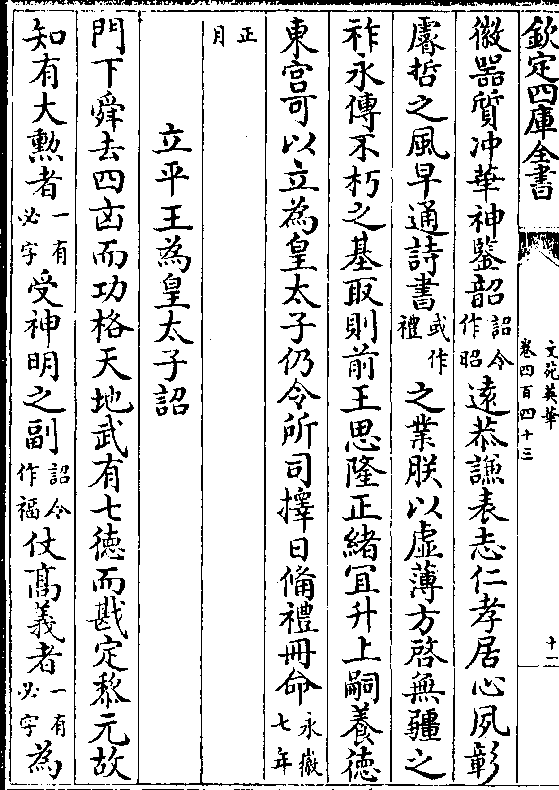 欽定四庫全書
文苑英華
卷四百四十三
十一
徽器質冲華神鑒韶詔令作昭遠恭謙表志仁孝居心夙彰
睿哲之風早通詩書或作禮之業朕以虛薄方啓無疆之
祚永傳不朽之基取則前王思隆正緒宜升上嗣養德
東宮可以立為皇太子仍令所司擇日備禮冊命永徽七年
正月
立平王為皇太子詔
門下舜去四凶而功格天地武有七德而戡定黎元故
知有大勲者一有必字受神明之副詔令作福仗髙義者一有必字為